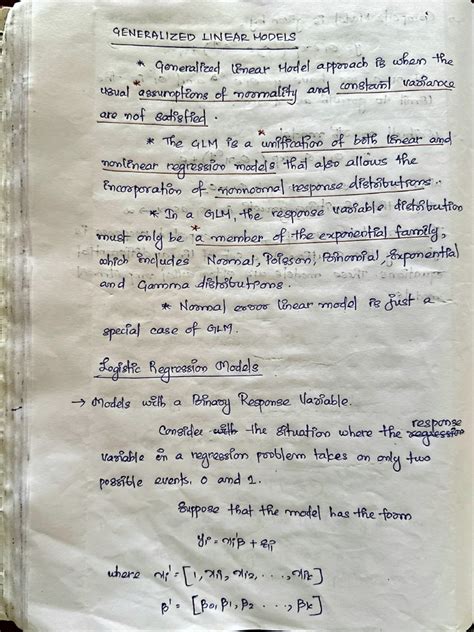 GENERALIZED LINEAR MODELS
* Generalized Linear Model approach is when the
usual *assumptions of normality and constant variance
are not satisfied.
* The GLM is a *unification of both linear and
nonlinear regression models that also allows the
incorporation of nonnormal response distributions.
* In a GLM, the response variable distribution
must only be *a member of the exponential family,
which includes Normal, Poisson, Binomial, Exponential
and Gamma distributions.
* Normal error linear model is just a
special case of GLM.
Logistic Regression Models
→ Models with a Binary Response Variable.
Consider with the situation where the regression response
variable in a regression problem takes on only two
possible events. 0 and 1.
Suppose that the model has the form
yi = xi'β + εi
where xi' = [1, xi1, xi2, ...., xik]
β' = [β0, β1, β2 ..., βk]